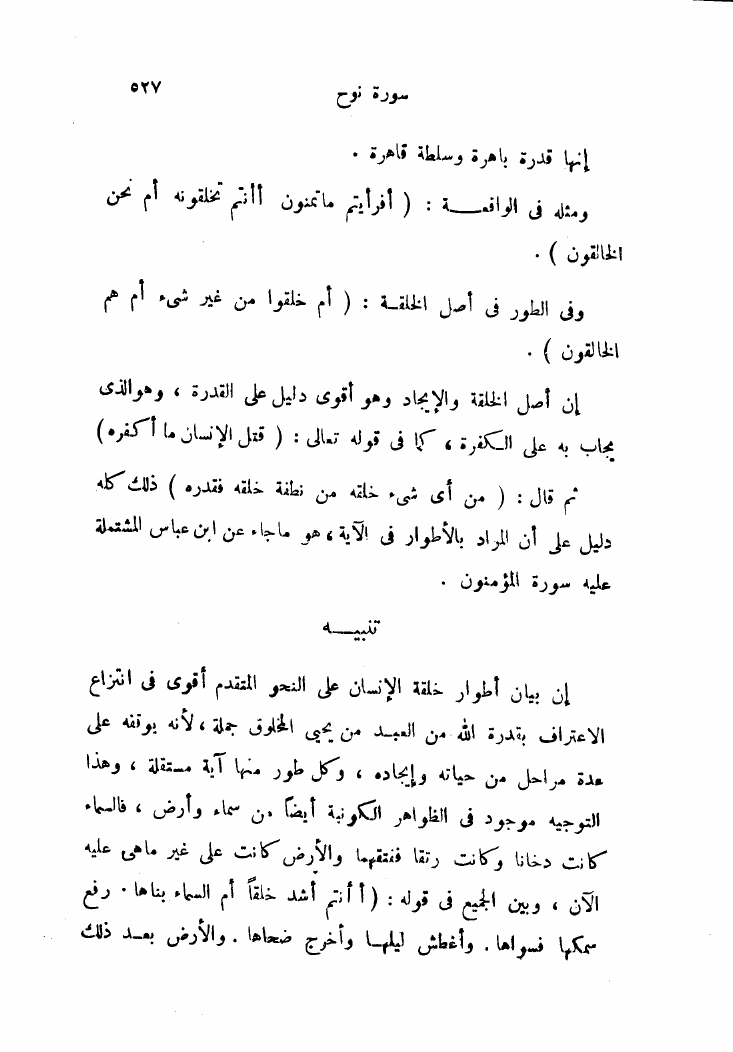 سورة نوح ٥٢٧
إنها قدرة باهرة وسلطة قاهرة .
ومثله فى الواقعــة : ( أفرأيتم ماتمنون أأنتم تخلقونه أم نحن
الخالقون ) .
وفى الطور فى أصل الخلقـة : ( أم خلقوا من غير شىء أم هم
الخالقون ) .
إن أصل الخلقة والإيجاد وهو أقوى دليل على القدرة ، وهوالذى
يجاب به على الكفرة ، كما فى قوله تعالى : ( قتل الإنسان ما أكفره )
ثم قال : ( من أى شىء خلقه من نطفة خلقه فقدره ) ذلك كله
دليل على أن المراد بالأطوار فى الآية ، هو ماجاء عن ابن عباس المشتملة
عليه سورة المؤمنون .
تنبيــه
إن بيان أطوار خلقة الإنسان على النحو المتقدم أقوى فى انتزاع
الاعتراف بقدرة الله من العبـد من يحيى المخلوق جملة ، لأنه يوقفه على
عدة مراحل من حياته وإيجاده ، وكل طور منها آية مستقلة ، وهذا
التوجيه موجود فى الظواهر الكونية أيضاً من سماء وأرض ، فالسماء
كانت دخانا وكانت رتقا ففتقهما والأرض كانت على غير ماهى عليه
الآن ، وبين الجميع فى قوله : ( أأنتم أشد خلقاً أم السماء بناها . رفع
سمكها فسواها . وأغطش ليلهـا وأخرج ضحاها . والأرض بعـد ذلك